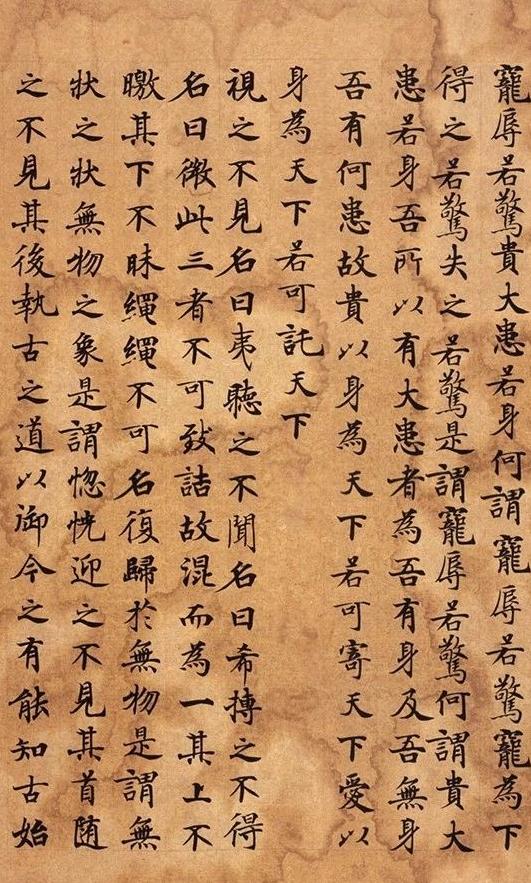 寵辱若驚貴大患若身何謂寵辱若驚寵為下
得之若驚失之若驚是謂寵辱若驚何謂貴大
患若身吾所以有大患者為吾有身及吾無身
吾有何患故貴以身為天下若可寄天下愛以
身為天下若可託天下
視之不見名曰夷聽之不聞名曰希摶之不得
名曰微此三者不可致詰故混而為一其上不
曒其下不昧繩繩不可名復歸於無物是謂無
狀之狀無物之象是謂惚恍迎之不見其首随
之不見其後執古之道以御今之有能知古始